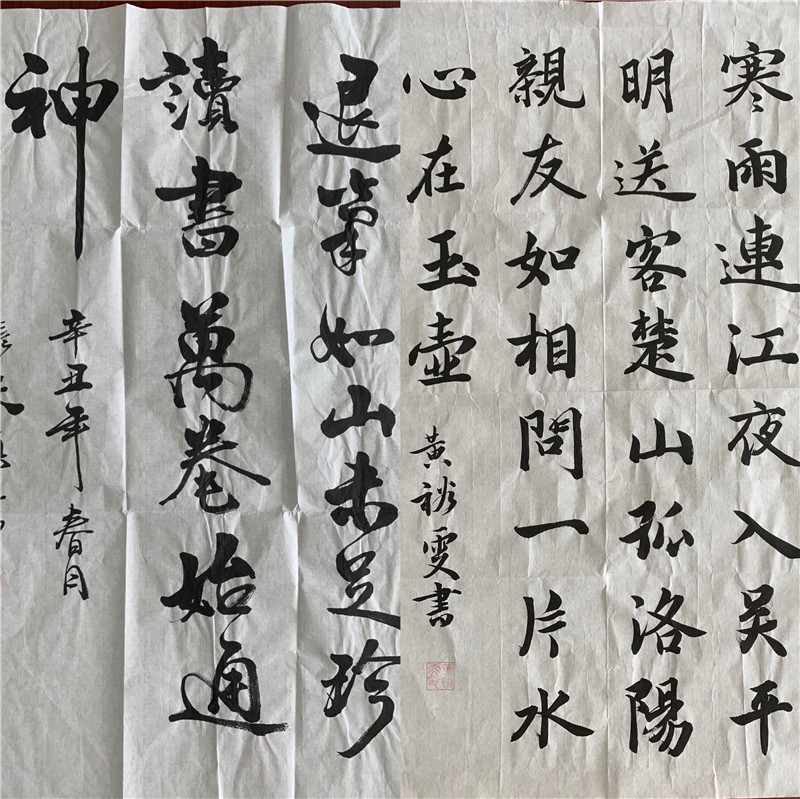 退筆如山未足珍
讀書萬卷始通
神
辛丑年春月
寒雨連江夜入吴平
明送客楚山孤洛陽
親友如相問一片水
心在玉壺
黄裕雯書